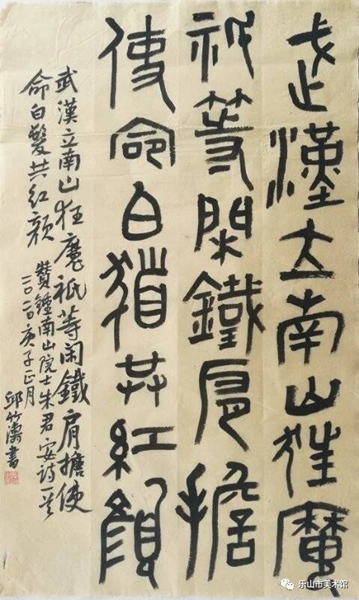 武漢立南山狂魔
祇等閑鐵肩擔
使命白髮共紅顏
武漢立南山狂魔祇等閑鐵肩擔使
命白髮共紅顏 贊鍾南山院士朱君安詩一首
二〇二〇庚子正月
邱竹書
乐山市美术馆